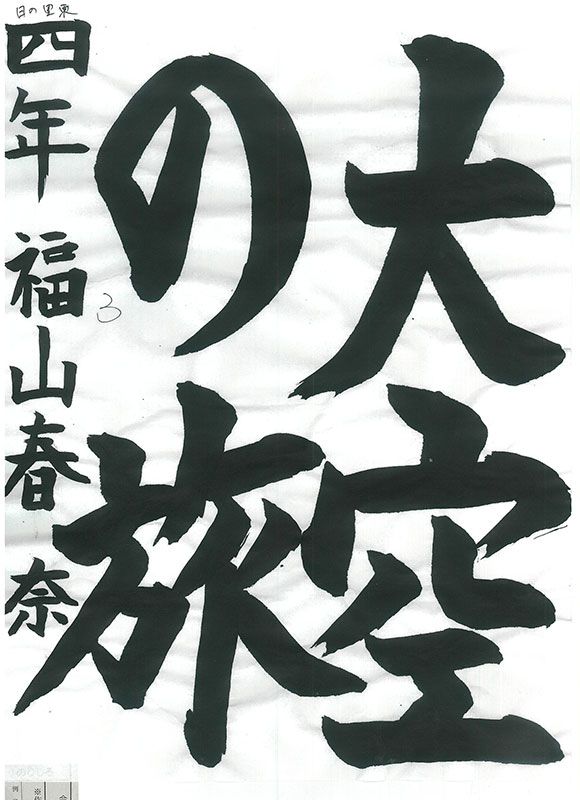 大空
の旅
四年 福山春奈
日の里東
3